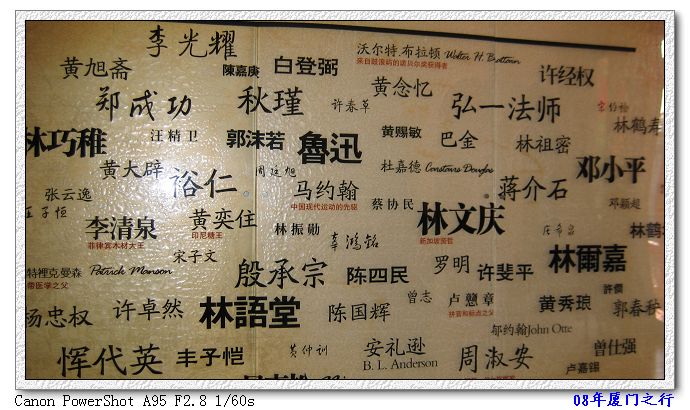 李光耀
沃尔特.布拉顿 Walter H. Brattain
来自鼓浪屿的诺贝尔奖获得者
黄旭斋
陳嘉庚
白登弼
黄念忆
许经权
郑成功
秋瑾
许春草
弘一法师
林鹤寿
林巧稚
汪精卫
郭沫若
魯迅
黄赐敏
巴金
林祖密
黄大辟
周廷旭
杜嘉德 Constairs Douglas
邓小平
张云逸
裕仁
马约翰
中国现代运动的先驱
蔡协民
蒋介石
邓颖超
王子恒
李清泉
菲律宾木材大王
黄奕住
印尼糖王
林振勋
辜鸿铭
林文庆
新加坡贤哲
林鹤
宋子文
特裡克曼森 Patrick Manson
带医学之父
殷承宗
陈四民
罗明
许斐平
林爾嘉
杨忠权
许卓然
林語堂
陈国辉
曾志
卢戆章
拼音和标点之父
黄秀琅
郭春秧
恽代英
丰子恺
黄仲训
安礼逊
B. L. Anderson
周淑安
郇约翰John Otte
曾仕强
卢嘉錫
Canon PowerShot A95 F2.8 1/60s
08年厦门之行